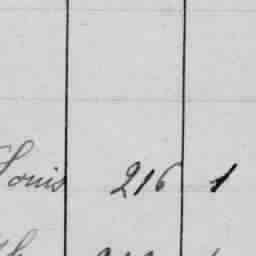 Louis 216 1